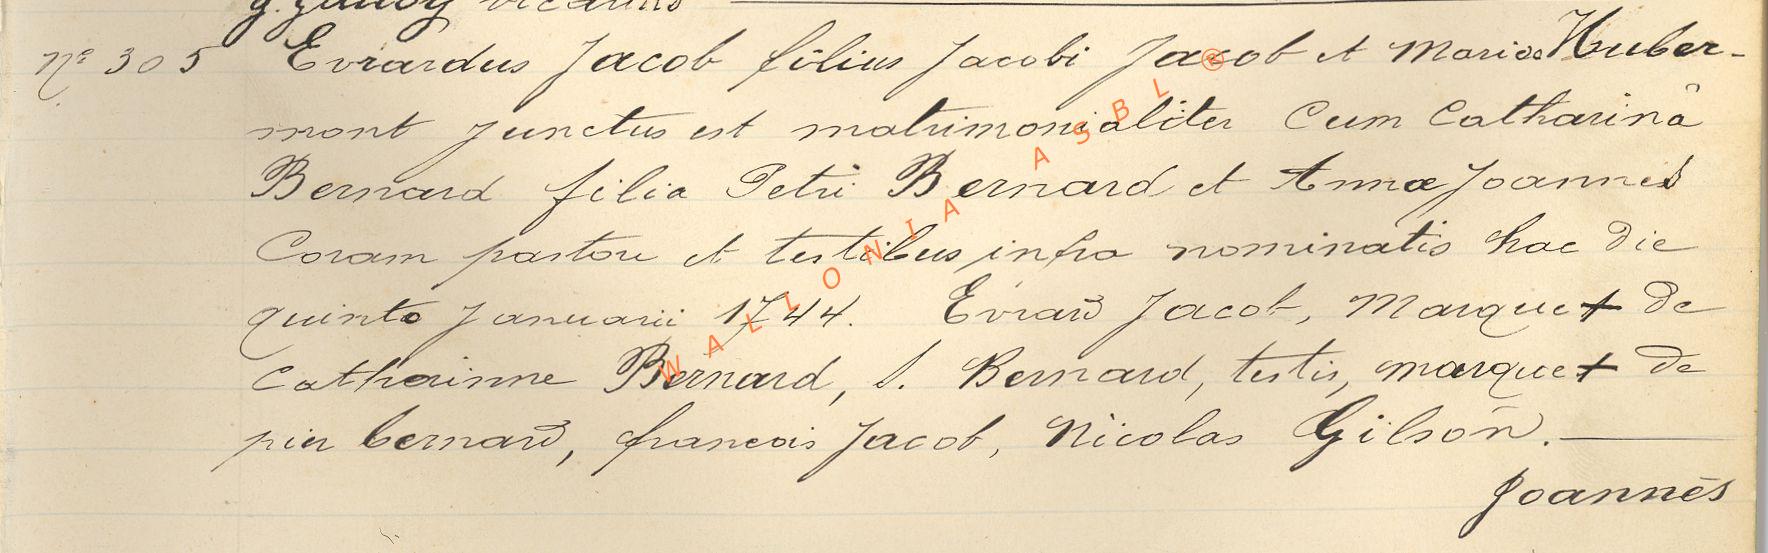 g. Jadot vicarius
N° 305 Evrardus Jacob filius Jacobi Jacob et Mariae Huber-
mont junctus est matrimonialiter Cum Catharinâ
Bernard filia Petri Bernard et Annae Joannes
Coram pastore et testibus infra nominatis hac die
quinto Januarii 1744. Evrard Jacob, Marque + de
Catherinne Bernard, S. Bernard, testis, marque + de
pier bernard, francois Jacob, Nicolas Gilson.
Joannes
WALLONIA ASBL ®